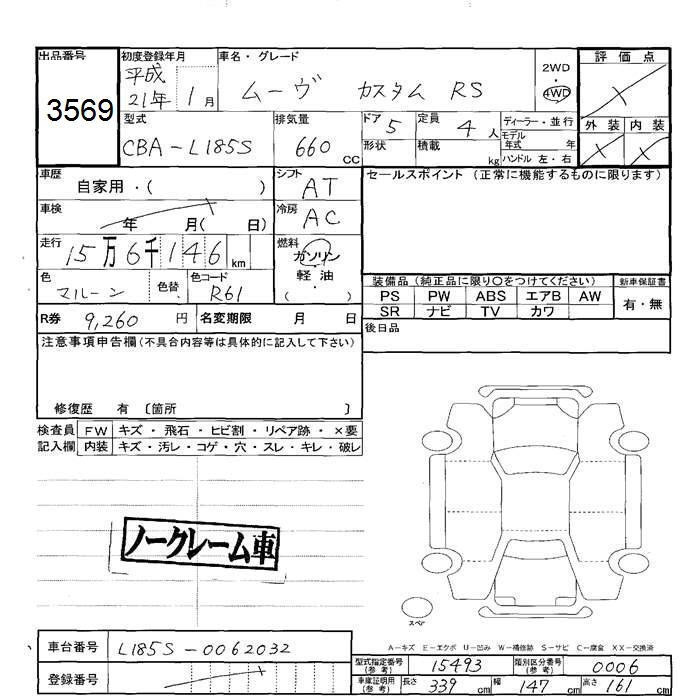 出品番号
3569
初度登録年月
平成
21年 1月
車名・グレード
ムーヴ カスタム RS
2WD
・
4WD
評価点
外装 内装
型式
CBA-L185S
排気量
660 cc
ドア 5
形状
定員 4 人
積載 kg
ディーラー・並行
モデル年式 年
ハンドル 左・右
車歴
自家用・( )
シフト
AT
車検
年 月( 日)
冷房
AC
走行
15万6千146km
燃料
ガソリン
軽油
( )
色
マルーン
色替
色コード
R61
R券 9,260 円
名変期限 月 日
セールスポイント (正常に機能するものに限ります)
装備品 (純正品に限り○をつけてください)
PS PW ABS エアB AW
SR ナビ TV カワ
新車保証書
有・無
後日品
注意事項申告欄(不具合内容等は具体的に記入して下さい)
修復歴 有 〔箇所 〕
検査員記入欄
FW キズ・飛石・ヒビ割・リペア跡・×要
内装 キズ・汚レ・コゲ・穴・スレ・キレ・破レ
ノークレーム車
スペア
A－キズ E－エクボ U－凹み W－補修跡 S－サビ C－腐食 XX－交換済
車台番号 L185S-0062032
登録番号
型式指定番号(参考) 15493
類別区分番号(参考) 0006
車庫証明用(参考) 長さ 339 cm 幅 147 cm 高さ 161 cm